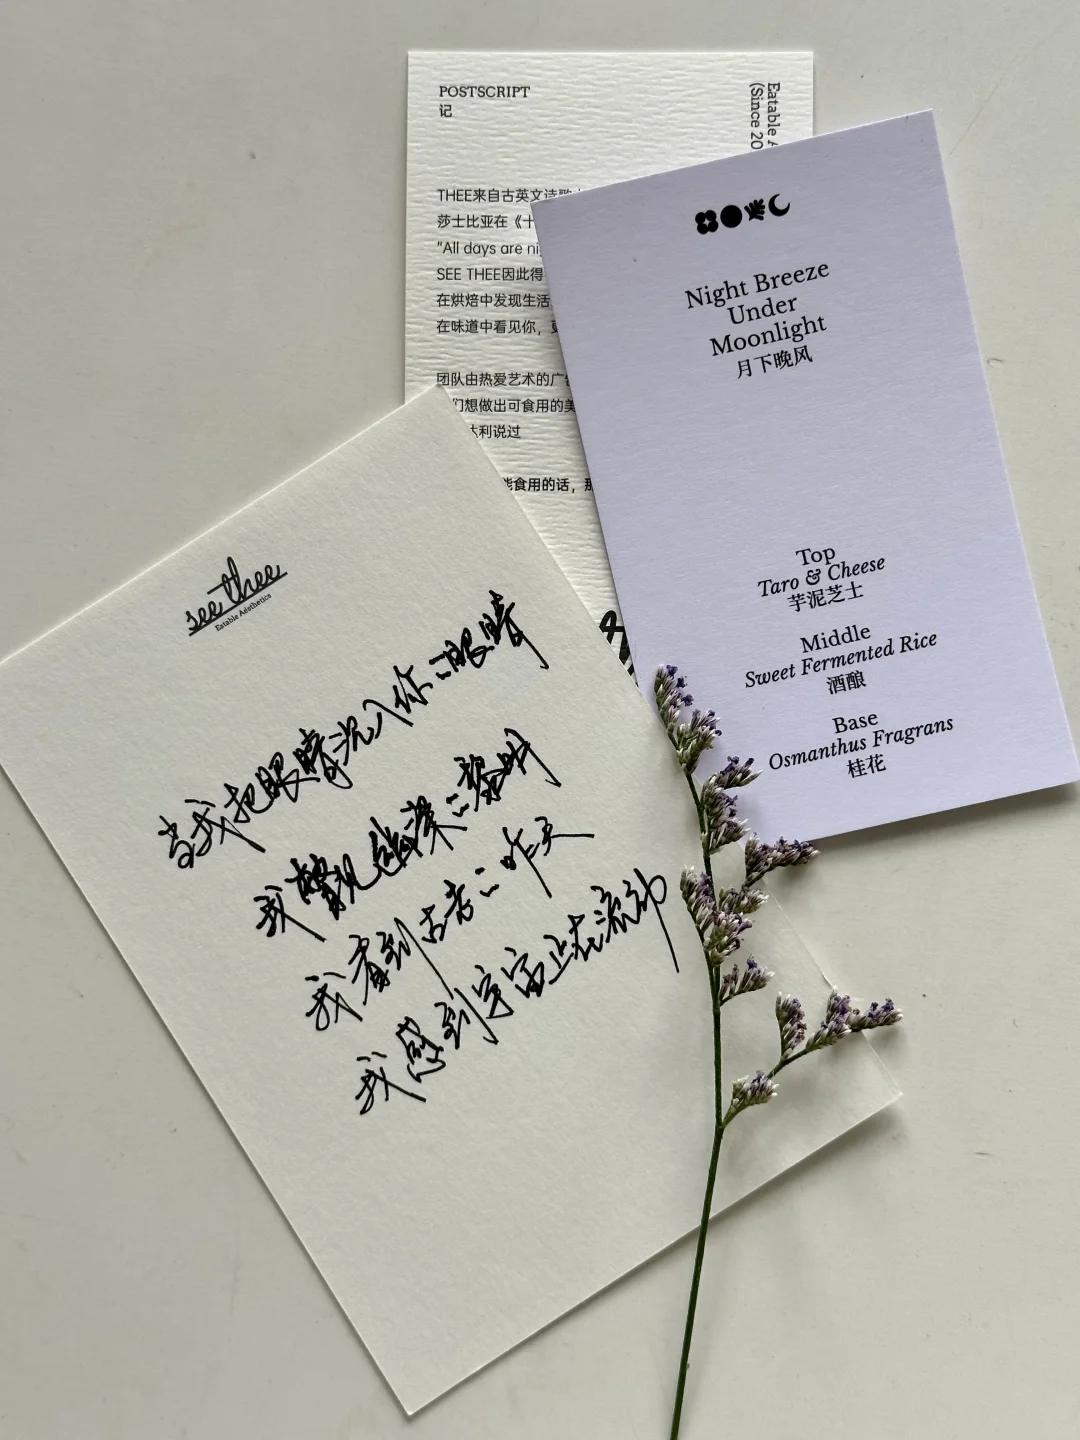 POSTSCRIPT
记
Eatable A
(Since 20
THEE来自古英文诗歌
莎士比亚在《十
"All days are nig
SEE THEE因此得
在烘焙中发现生活
在味道中看见你，更
团队由热爱艺术的广告
们想做出可食用的美
达利说过
能食用的话，那
Night Breeze
Under
Moonlight
月下晚风
Top
Taro & Cheese
芋泥芝士
Middle
Sweet Fermented Rice
酒酿
Base
Osmanthus Fragrans
桂花
see thee
Eatable Aesthetics
当我把眼睛沉入你的眼睛
我瞥见幽深的黎明
我看到古老的昨天
我感到宇宙正在流动